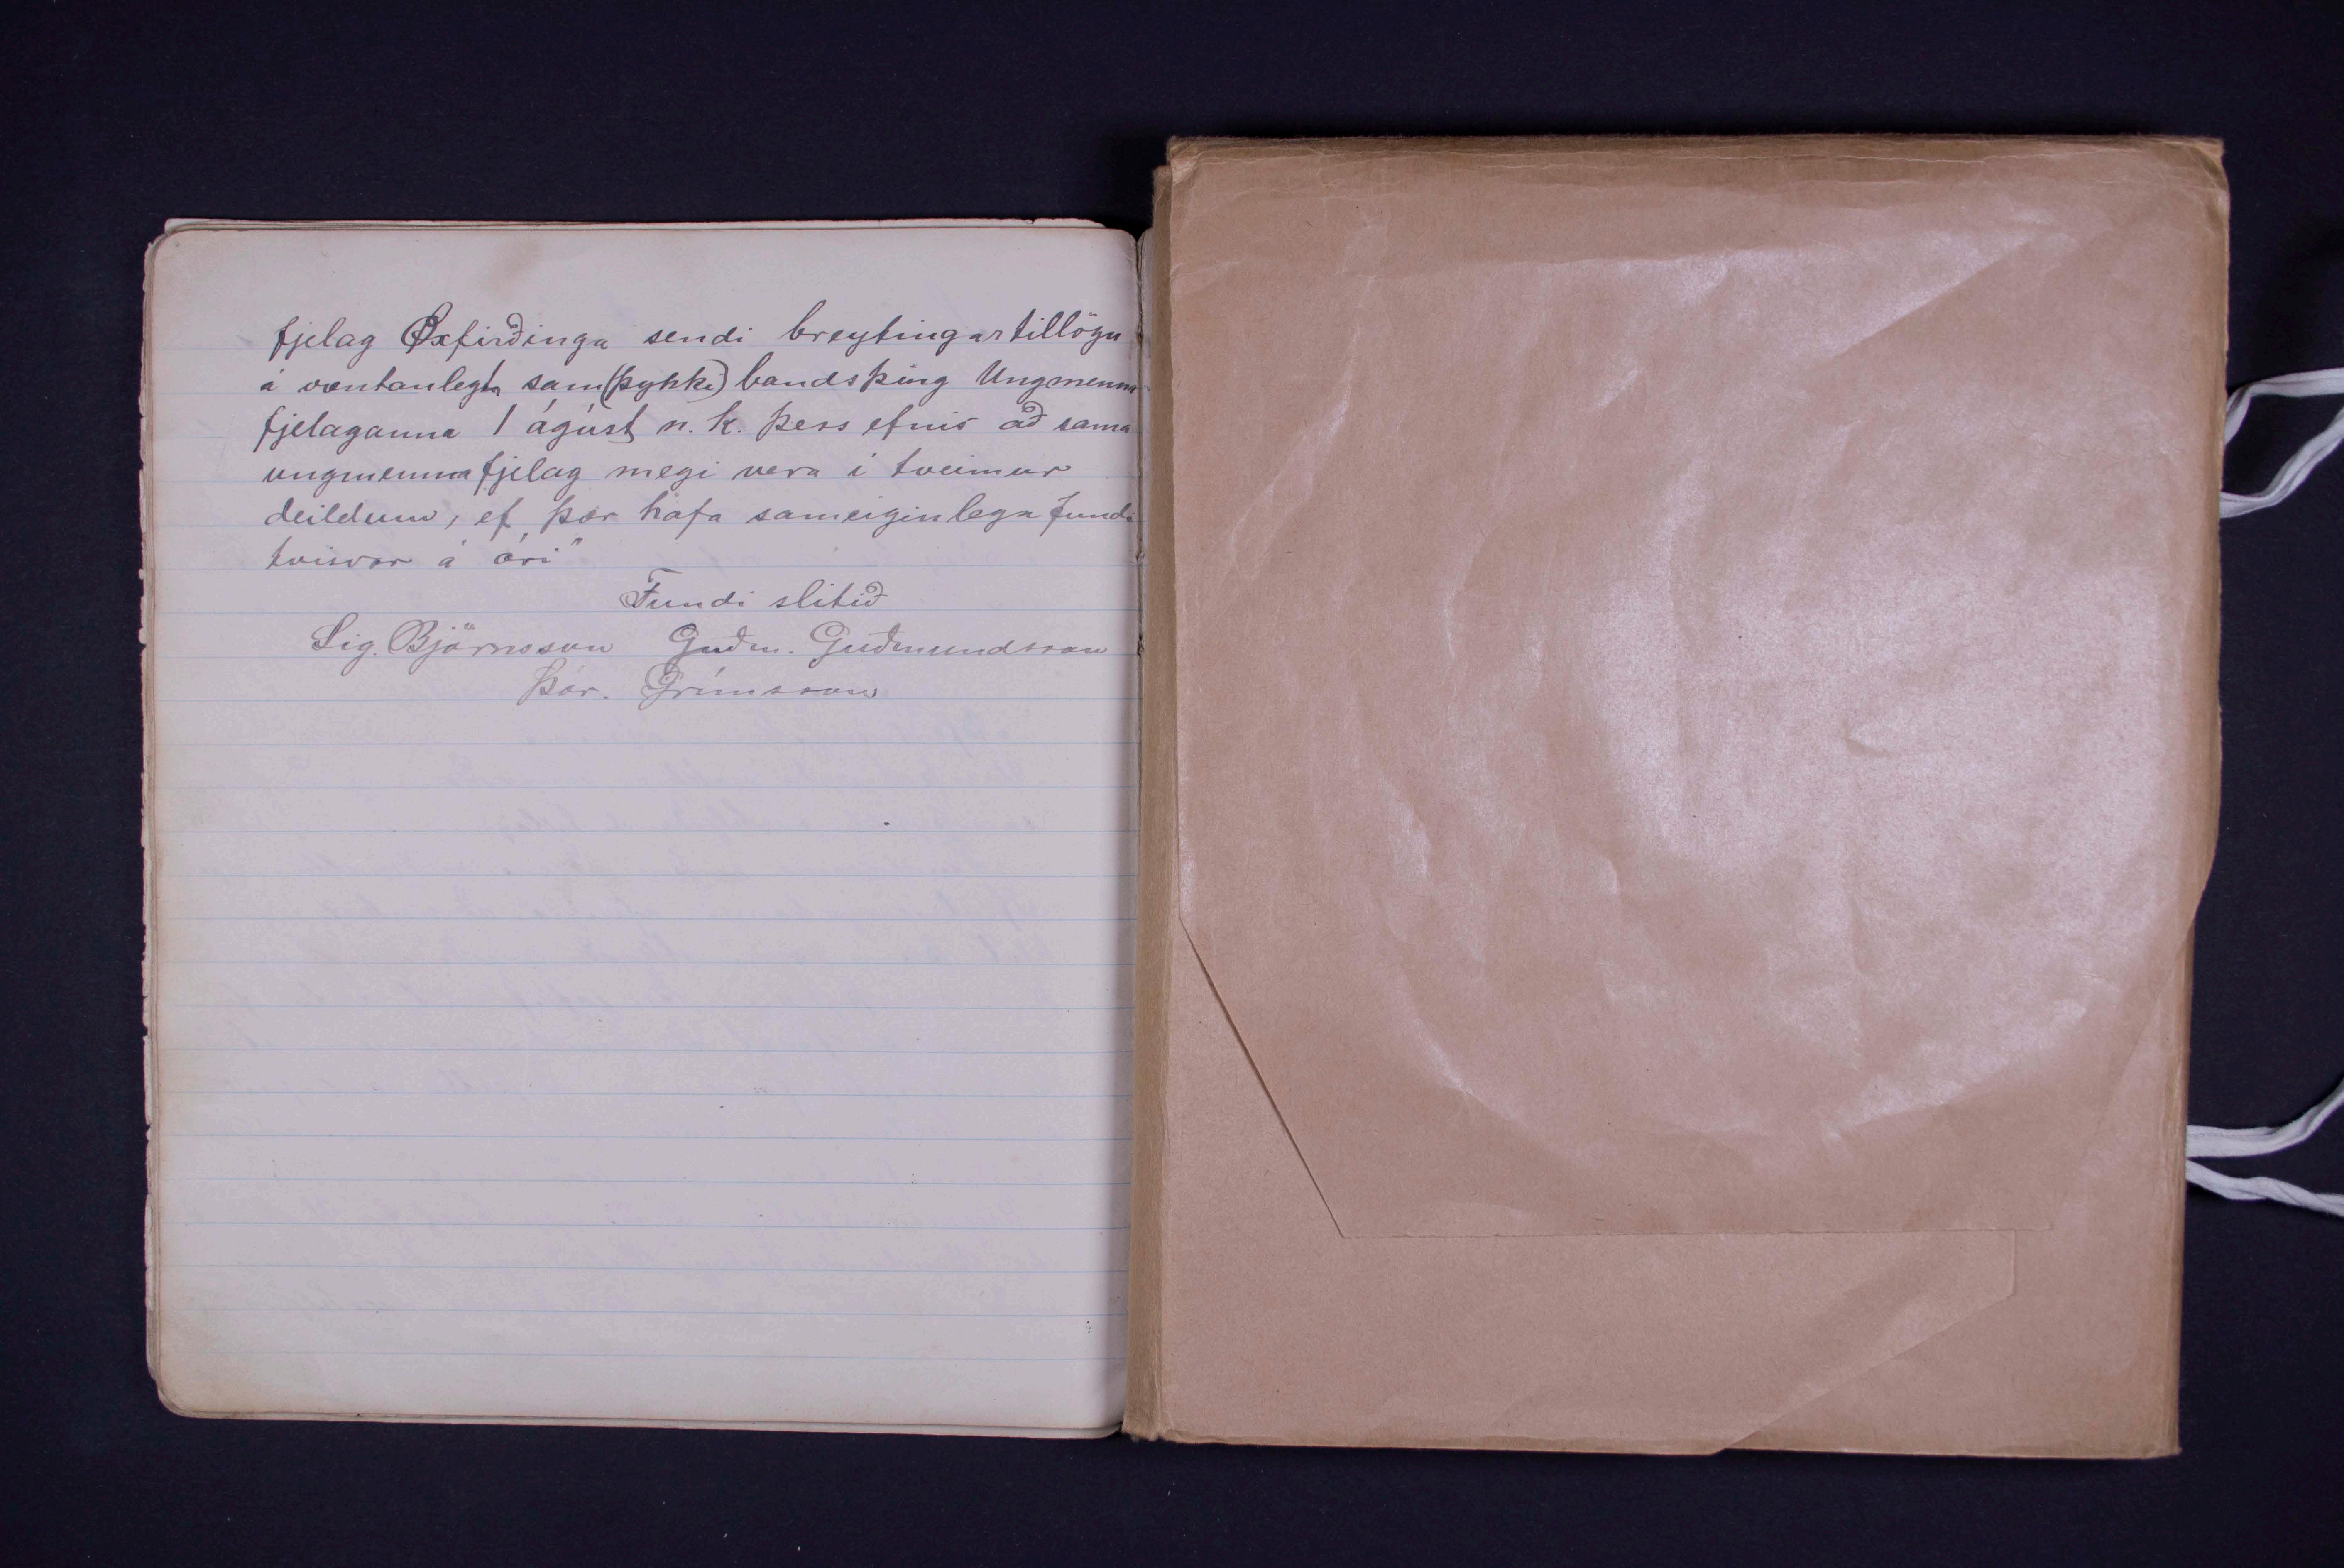 fjelag Øxfirðinga sendi breytingartillögu
á væntanlegt sam(þykki)bandsþing Ungmenna
fjelaganna 1 ágúst n. k. þess efnis að sama
ungmennafjelag megi vera í tveimur
deildum, ef þær hafa sameiginlega fundi
tvisvar á ári"
Fundi slitið
Sig. Björnsson Guðm. Guðmundsson
Þór. Grímsson